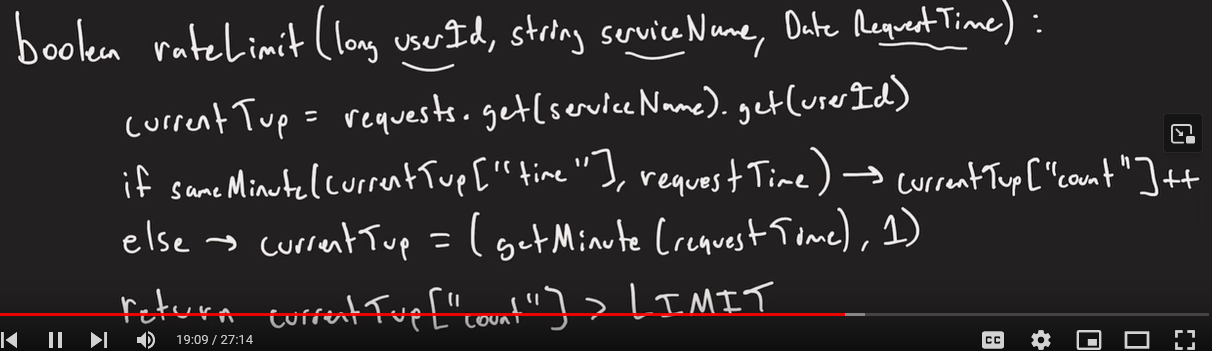 boolean rateLimit(long userId, string serviceName, Date RequestTime):
currentTup = requests.get(serviceName).get(userId)
if sameMinute(currentTup["time"], requestTime) → currentTup["count"]++
else → currentTup = (getMinute(requestTime), 1)
return currentTup["count"] > LIMIT
19:09 / 27:14
CC